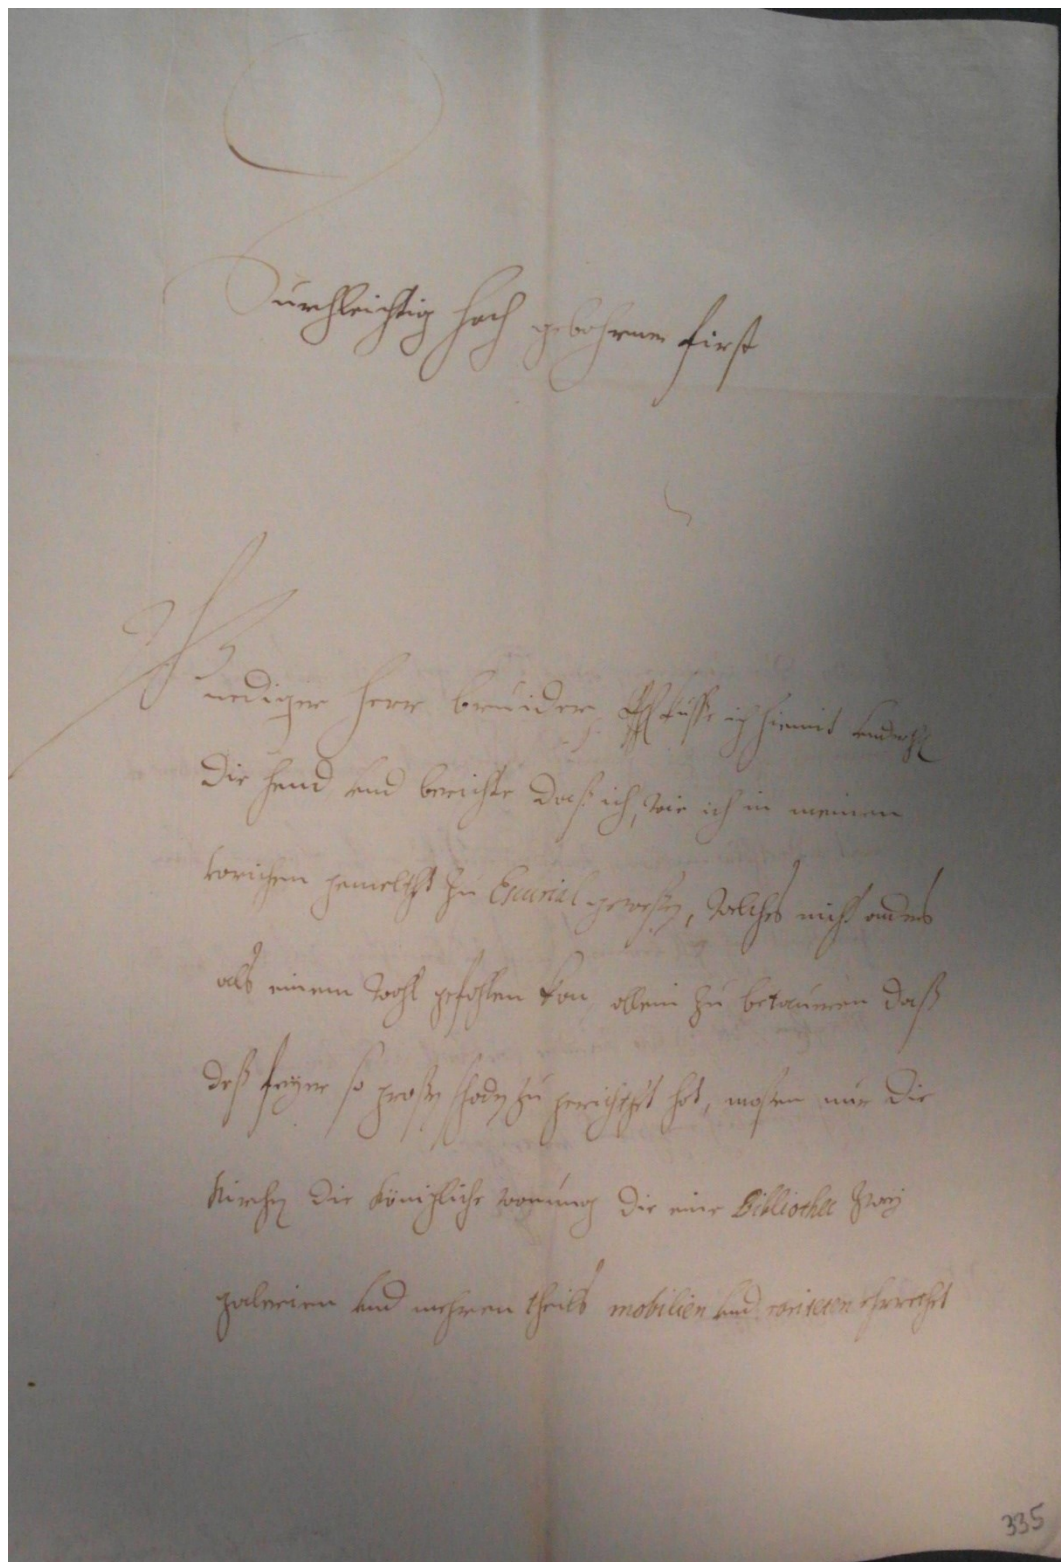 Durchleichtig hoch gebohrner first
Gnediger herr bruider, küsse ich hiemit
die hend und berichte daß ich, wie ich in meinem
vorichen gemeltht zu Escurial gewessen, welches nicht anders
als einem wohl gefohlen kan allein zu betauren daß
deß feyer so grossen schaden zu gerichtht hot, massen nur die
Kirchen die königliche wonung die eine Bibliothec zwey
galerien und mehren theils mobilien und rariteten
335